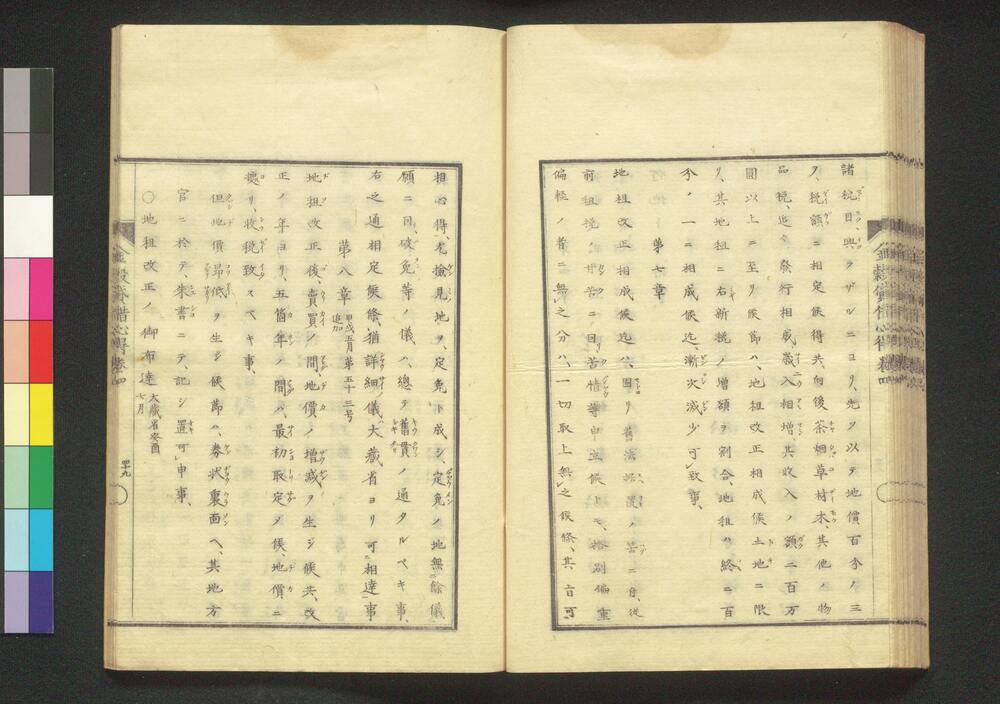 諸税目、興ラザルニヨリ、先ヅ以テ地價百分ノ三
ヲ、税額ニ相定候得共、向後茶烟草材木、其他ノ物
品税、追々發行相成、歳入相増、其收入ノ額二百万
圓以上ニ至リ候節ハ、地租改正相成候土地ニ限
リ、其地租ニ右新税ノ増額ヲ割合、地租ハ終ニ百
分ノ一ニ相成候迄、漸次減少可致事、
第七章
地租改正相成候迄ハ、固リ舊法据置ノ筈ニ付、從
前租税ノ甘苦ニ因リ苦情等申立候トモ、格別偏重
偏輕ノ者ニ無之分ハ、一切取上無之候條、其旨可
相心得、尤撿見地ヲ、定免ト成シ、定免ノ地、無餘儀
願ニ因、破免等ノ儀ハ、總テ舊貫ノ通タルベキ事、
右之通相定候條、猶詳細ノ儀ハ、大藏省ヨリ可相達事、
第八章 甲戌五月第五十三号追加
地租改正後、賣買ノ間、地價ノ増減ヲ生シ候共、改
正ノ年ヨリ、五箇年ノ間ハ、最初取定メ候、地價ニ
據リ、收税致スベキ事、
但地價昻低ヲ生シ候節ハ、券状裏面ヘ、其地方
官ニ於テ、朱書ニテ、記シ置可申事、
○地租改正ノ御布達 大藏省癸酉七月
金穀貸借心得 卷四
四十九